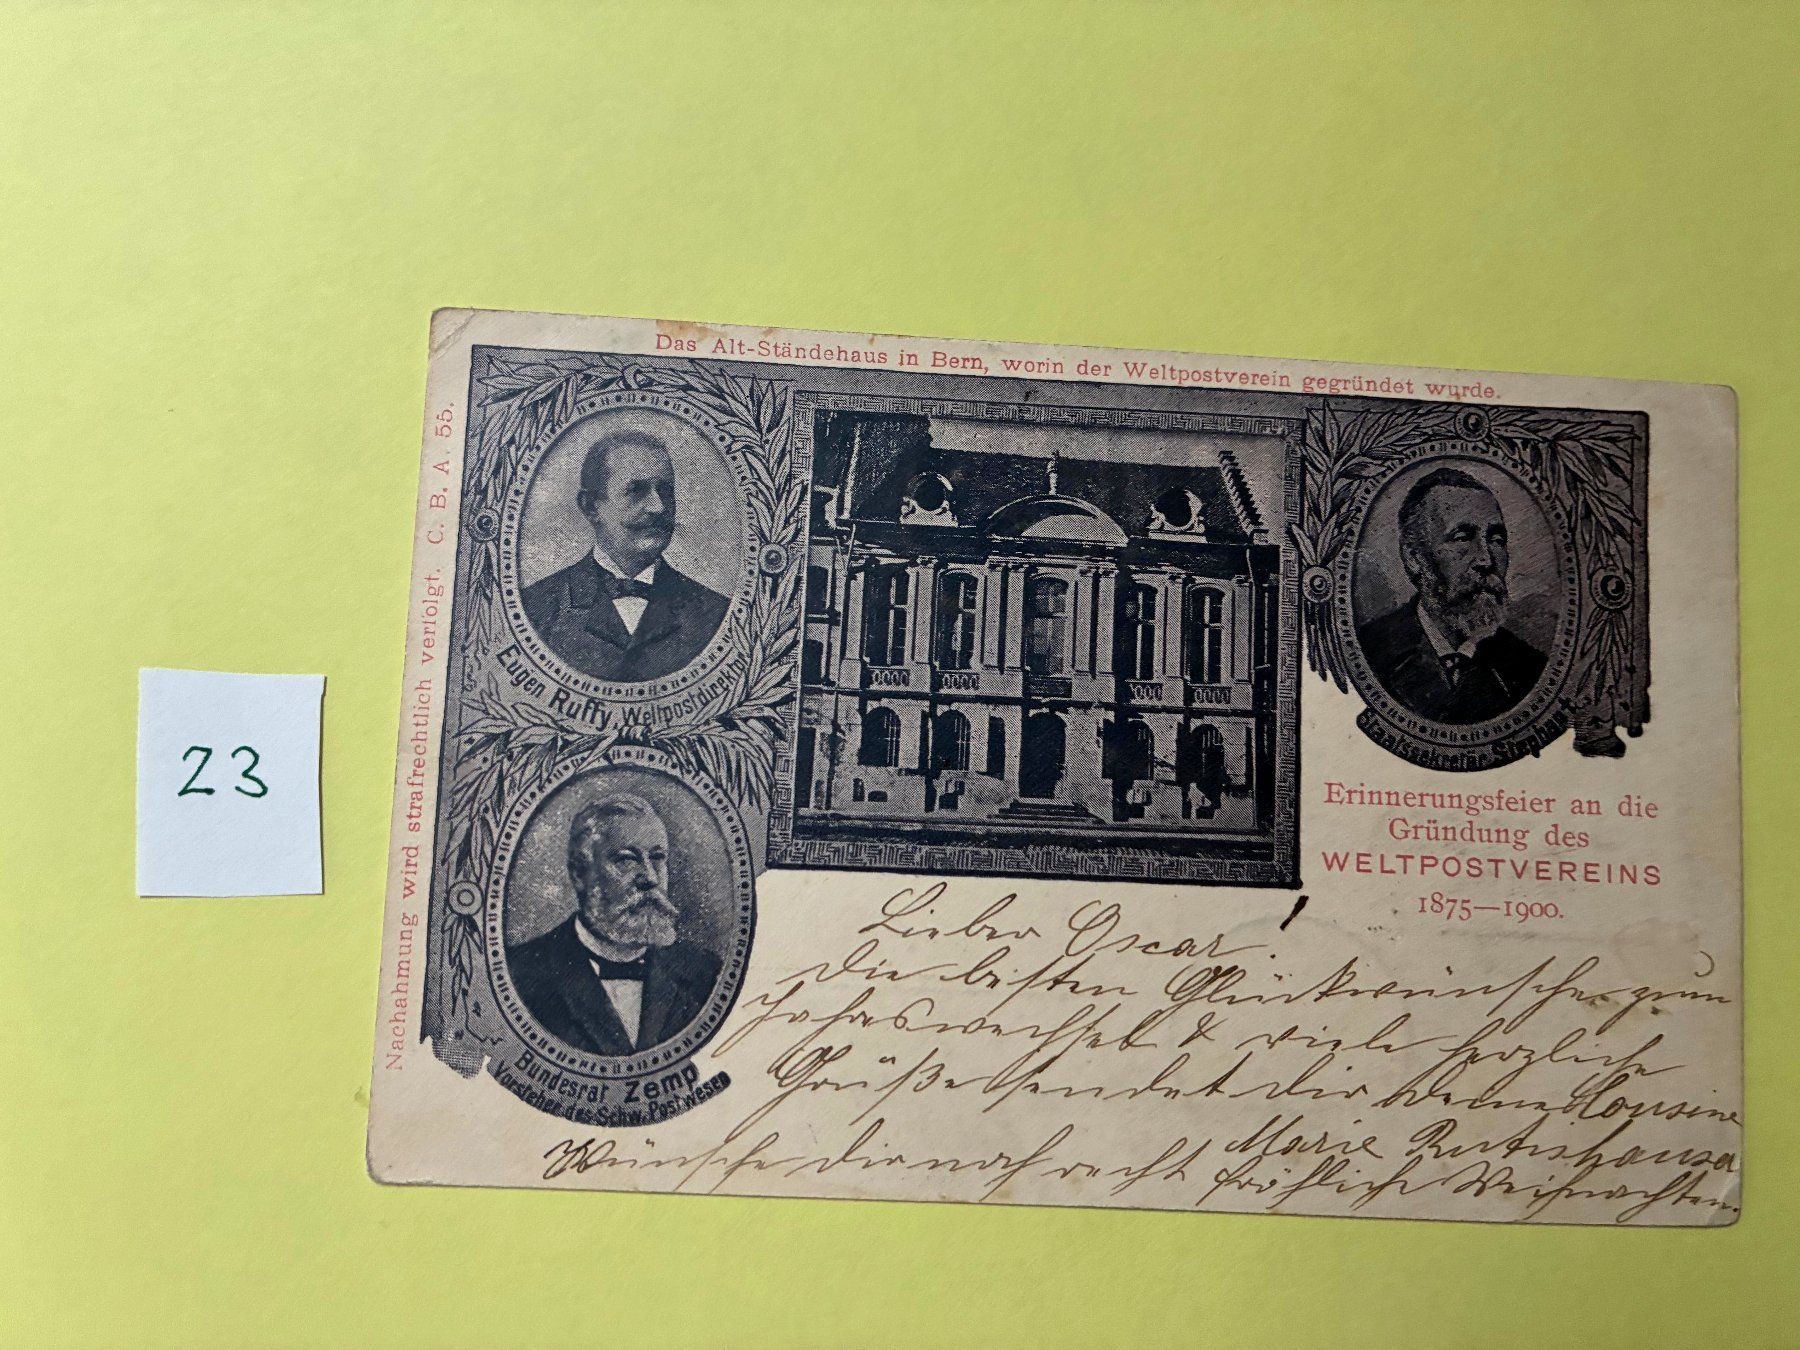 23
Das Alt-Ständehaus in Bern, worin der Weltpostverein gegründet wurde.
Nachahmung wird strafrechtlich verfolgt. C. B. A. 55.
Eugen Ruffy, Weltpostdirektor
Bundesrat Zemp
Vorsteher des Schw. Postwesen
Staatssekretär Stephan †
Erinnerungsfeier an die
Gründung des
WELTPOSTVEREINS
1875—1900.
Lieber Oscar!
Die besten Glückwünsche zum
Jahreswechsel & viele herzliche
Grüße sendet dir deine Cousine
Marie Rutishauser
Wünsche dir noch recht fröhliche Weihnachten.